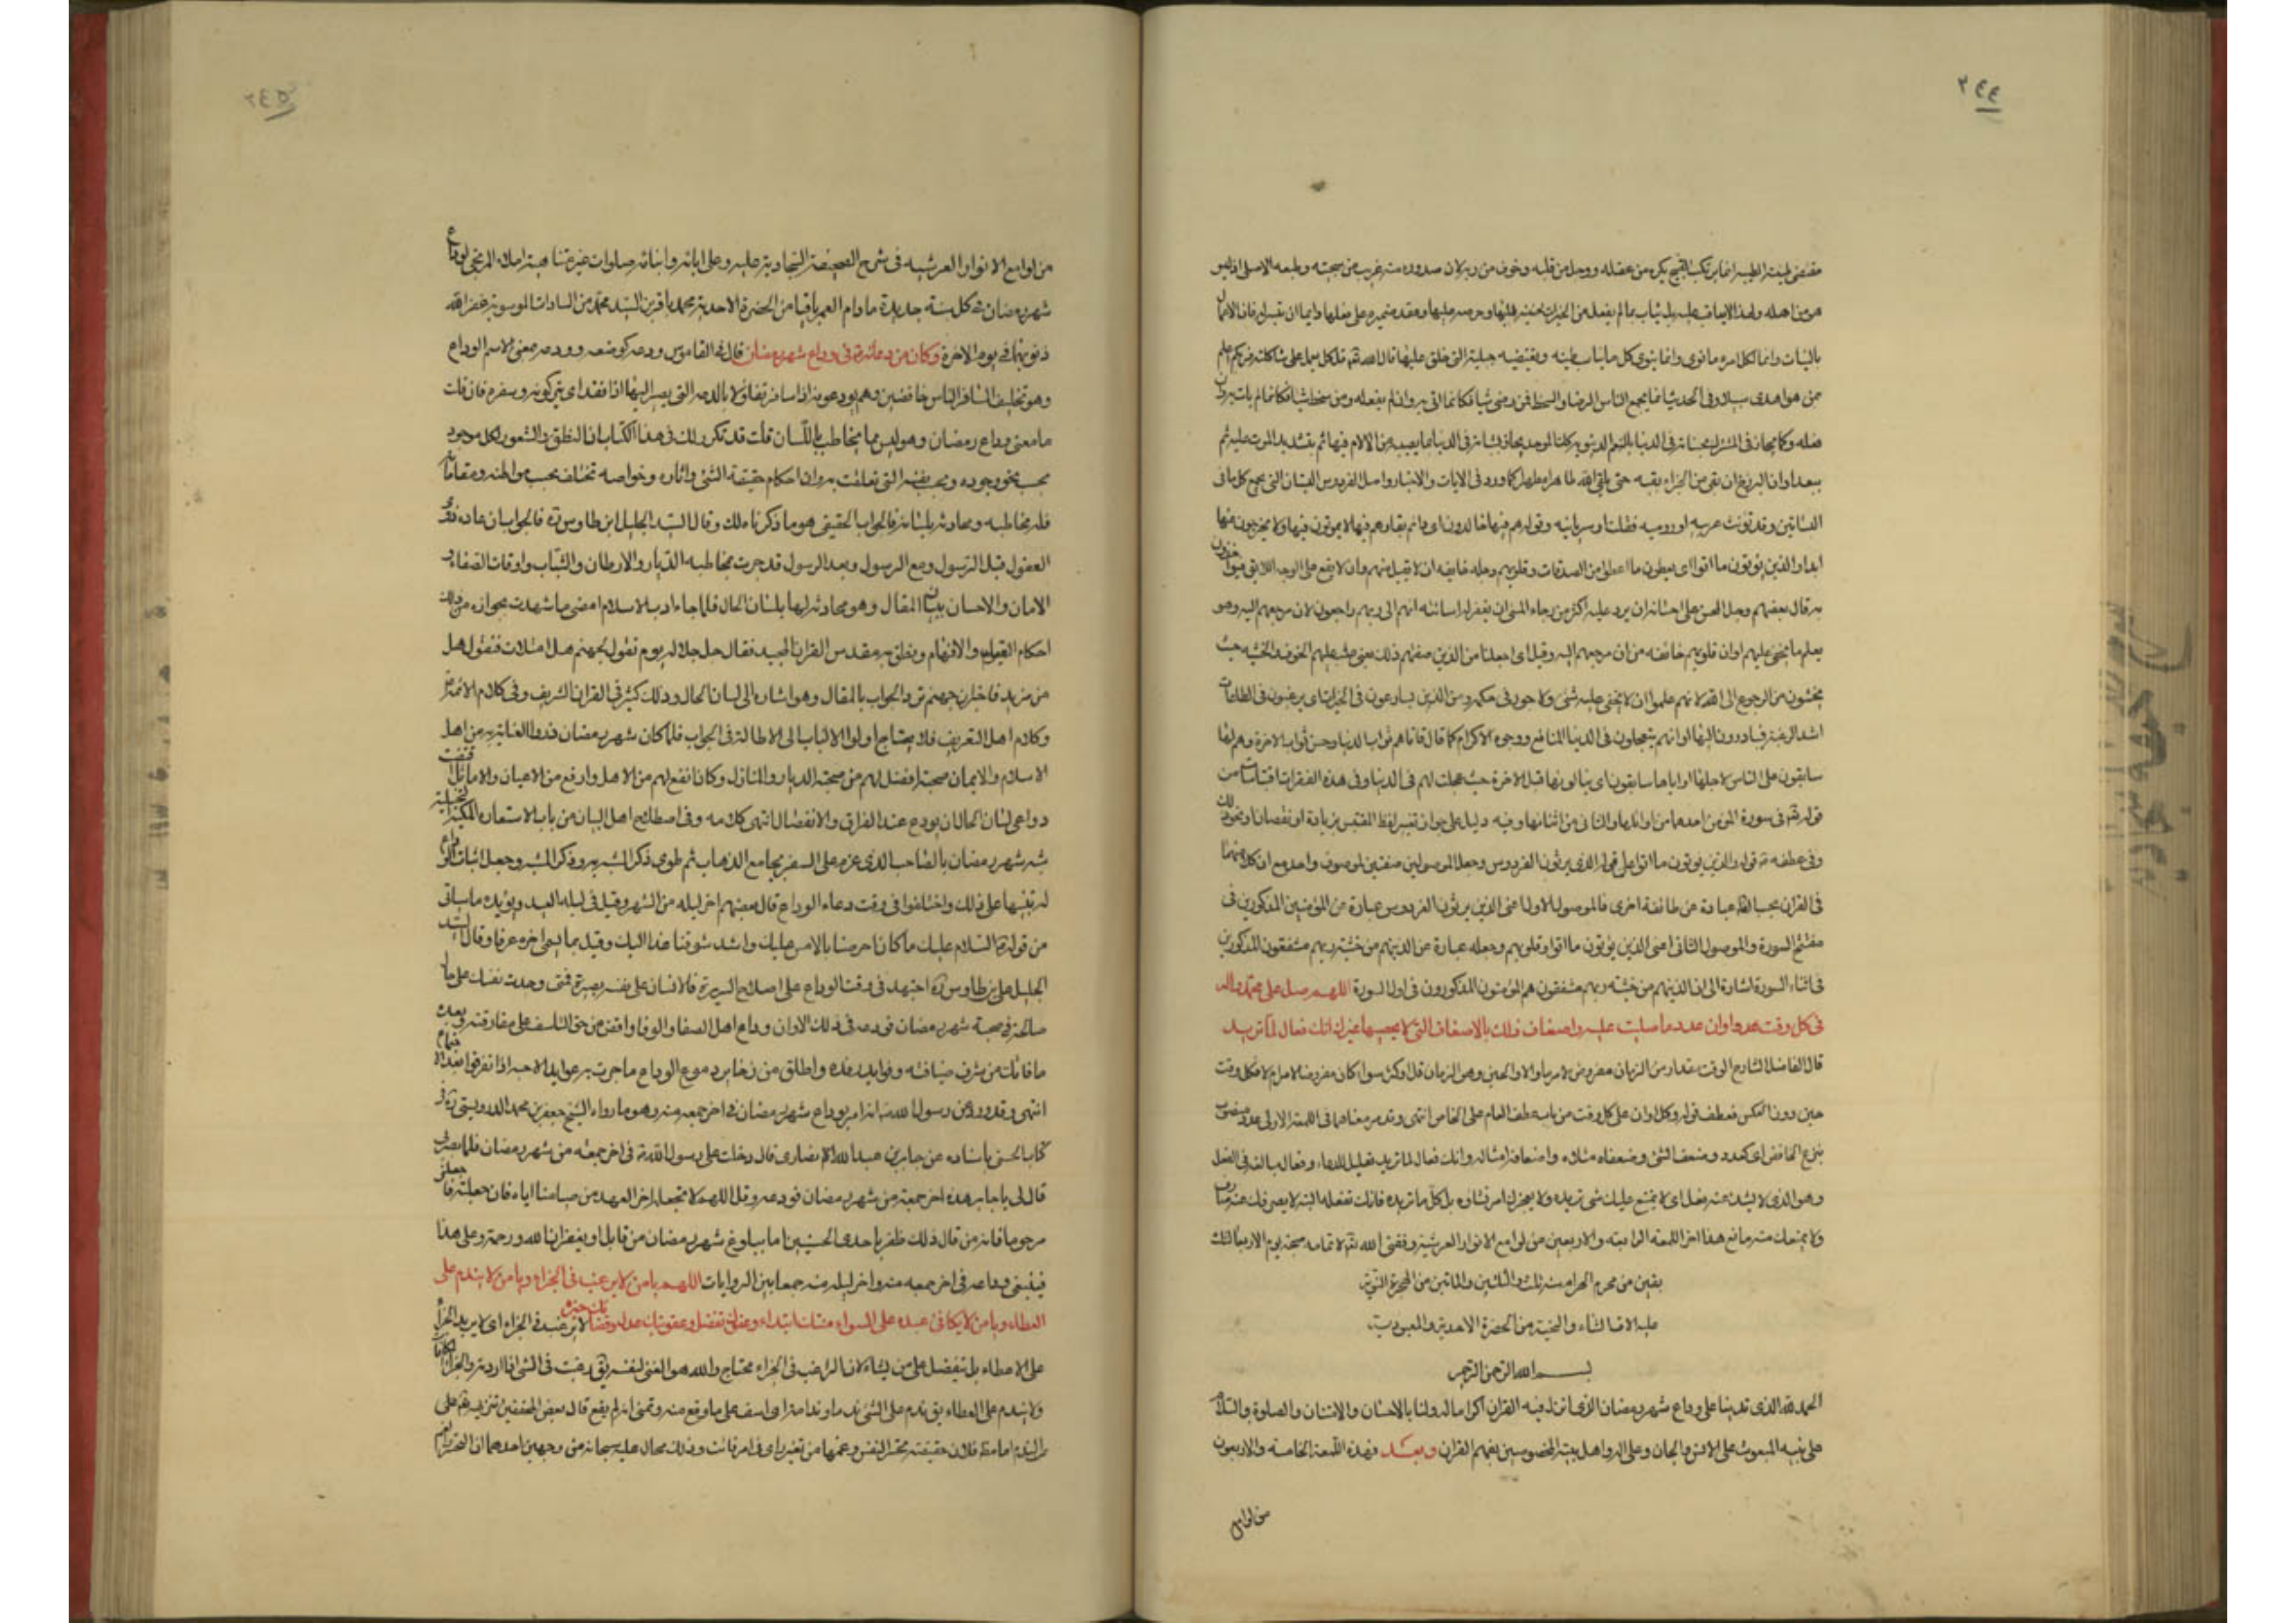 ٢٤٤
مقتضى طينته الطيبة انما يرتكب القبيح بكره من عقله ووجل من قلبه وخوف من ربه لان صدوره منه غريب من سجيته وطبعه الاصلى اذ ليس
هو من اهله ولهذا لا يعاقب عليه بل يثاب بما لم يفعل من الخيرات لحنينه اليها وحرصه عليها وعقد ضميره على فعلها دايما ان تيسر له فانما الاعمال
بالنيات وانما لكل امرء ما نوى وانما ينوى كل ما يناسب طينته ويقتضيه جبلته التى خلق عليها قال الله تعالى قل كل يعمل على شاكلته فربكم اعلم
بمن هو اهدى سبيلا وفى الحديث انما يجمع الناس الرضا والسخط فمن رضى شيئا فكانما اتى به وان لم يفعله ومن سخط شيئا فكانما لم يات به وان
فعله وكما يجازى المشرك بحسناته فى الدنيا بالنعم الدنيوية كذلك الموحد يجازى بسيئاته فى الدنيا بما يصيبه من الالام فيها ثم بتشديد الموت عليه ثم
بعد اوان البرزخ ان بقى من الجزاء بقيه حتى يلقى الله طاهرا مطهرا كما ورد فى الايات والاخبار واصل الفردوس البستان الذى يجمع كل ما فى
البساتين وقد تؤنث عربيه او روميه نقلت او سريانيه وقوله هم فيها خالدون اى دائم بقاءهم فيها لا يموتون فيها ولا يخرجون منها
ابدا والذين يؤتون ما اتوا اى يعطون ما اعطوا من الصدقات وقلوبهم وجله خايفه ان لا يقبل منهم وان لا يقع على الوجه اللايق فيؤاخذون
به قال بعضهم وجل المحسن على احسانه ان يرد عليه اكثر من رجاء المسئ ان يغفر له اسائته انهم الى ربهم راجعون لان مرجعهم اليه وهو
يعلم ما يخفى عليهم اوان قلوبهم خائفه من ان مرجعهم اليه وقيل اى اجعلنا من الذين صفتهم ذلك يعنى غلب عليهم الخوف والخشيه حيث
يخشون من الرجوع الى الله لانهم علموا ان لا يخفى عليه شئ ولا جور فى حكمه ومن الذين يسارعون فى الخيرات اى يرغبون فى الطاعات
اشد الرغبه فيبادرون اليها او انهم يتعجلون فى الدنيا المنافع ووجوه الاكرام كما قال فاتاهم ثواب الدنيا وحسن ثواب الاخرة وهم لها
سابقون على الناس لاجلها او اياها سابقون اى ينالونها قبل الاخرة حيث عجلت لهم فى الدنيا وفى هذه الفقرات اقتباسات من
قوله تعالى فى سورة المؤمن احدهما من اوائلها والثانى من اثنائها وفيه دليل على جواز تغيير لفظ المقتبس بزيادة او نقصان او نحو ذلك
وفى عطفه قوله والذين يؤتون ما اتوا على قوله الذين يرثون الفردوس وجعل الموصولين صفتين لموصوف واحد مع ان كلا منهما
فى القران بحسب الظاهر عبارة عن طائفة اخرى فالموصول الاول اعنى الذين يرثون الفردوس عبارة عن المؤمنين المذكورين فى
مفتتح السورة والموصول الثانى اعنى الذين يؤتون ما اتوا وقلوبهم وجله عبارة عن الذين هم من خشية ربهم مشفقون المذكورين
فى اثناء السورة اشارة الى ان الذين هم من خشيه ربهم مشفقون هم المؤمنون المذكورون فى اول السورة اللهم صل على محمد واله
فى كل وقت وكل اوان عدد ما صليت عليه واضعاف ذلك بالاضعاف التى لا يحصيها غيرك انك فعال لما تريد
قال الفاضل الشارح الوقت مقدار من الزمان مفروض لامر ما والاوان الحين وهو الزمان قل او كثر سواء كان مفروضا لامر ام لا فكل وقت
حين دون العكس فعطف قوله وكل اوان على كل وقت من باب عطف العام على الخاص انتهى وقد مر معناهما فى اللمعة الاولى عدد منصوب
بنزع الخافض اى كعدد وضعف الشئ وضعفاه مثلاه واضعافه امثاله وانك فعال لما تريد تعليل للدعاء وفعال مبالغه فى الفعل
وهو الذى لا يشذ عنه فعل اى لا يمتنع عليك شئ تريده ولا يعجزك امر تشاؤه بل كل ما تريده فانك تفعله البته لا يصرفك عنه صارف
ولا يمنعك منه مانع هذا اخر اللمعه الرابعه والاربعين من لوامع الانوار العرشيه وفقنى الله تعالى لاتمامه صبحة يوم الاربعا لثلث
بقين من محرم الحرام سنه ثلث والثلثين والماتين من الهجرة النبويه
عليه الاف الثناء والتحية من الحضرة الاحدية والمعبودية
بسم الله الرحمن الرحيم
الحمد لله الذى ندبنا على وداع شهر رمضان الذى انزل فيه القران اكراما له ولنا بالاحسان والامتنان والصلوة والسلام
على نبيه المبعوث على الانس والجان وعلى اله واهل بيته المخصوصين بفهم القران وبعد فهذه اللمعة الخامسة والاربعون
من لوامع
٢٤٥
من لوامع الانوار العرشيه فى شرح الصحيفة السجادية عليه وعلى ابائه وابنائه صلوات غير متناهية املاء المرتجى لوداع
شهر رمضان فى كل سنة جديدة ما دام العمر باقيا من الحضرة الاحدية محمد باقر بن السيد محمد من السادات الموسوية غفر الله
ذنوبهما فى يوم الاخرة وكان من دعائه فى وداع شهر رمضان قال فى القاموس ودعه كوضعه وودعه بمعنى والاسم الوداع
وهو تخليف المسافر الناس خافضين وهم يودعونه اذا سافر تفاؤلا بالدعه التى يصير اليها اذا قفل اى يتركونه وسفره فان قلت
ما معنى وداع رمضان وهو ليس مما يخاطب باللسان قلت قد تكرر لك فى هذا الكتاب ان النطق والشعور لكل موجود
بحسب نحو وجوده وبحسب نفسه التى تعلقت به وان احكام حقيقة الشئ واثاره وخواصه تختلف بحسب مواطنه ومقاماته
فله مخاطبه ومحادثه بلسانه فالجواب الحقيقى هو ما ذكرناه لك وقال السيد الجليل ابن طاوس ره فالجواب ان عاده ذوى
العقول قبل الرسول ومع الرسول وبعد الرسول قد جرت مخاطبه الديار والاوطان والشباب واوقات الصفاء و
الامان والاحسان ببيان المقال وهو محادثه لها بلسان الحال فلما جاء ادب الاسلام امضى ما شهدت بجوازه من ذلك
احكام العقول والافهام ونطق به مقدس القران المجيد فقال جل جلاله يوم نقول لجهنم هل امتلات فتقول هل
من مزيد فاخبر ان جهنم ترد الجواب بالمقال وهو اشاره الى لسان الحال وذلك كثير فى القران الشريف وفى كلام الائمه
وكلام اهل التعريف فلا يحتاج اولوا الالباب الى الاطالة فى الجواب فلما كان شهر رمضان قد والعناية به من اهل
الاسلام والايمان صحبة افضل لهم من صحبة الديار والمنازل وكان انفع لهم من الاهل وارفع من الاعيان والاماثل اقتضت
دواعى لسان الحال ان يودع عند الفراق والانفصال انتهى كلامه وفى اصطلاح اهل البيان من باب الاستعاره المكنية التخييلية
شبه شهر رمضان بالصاحب الذى عزم على السفر بجامع الذهاب ثم طوى ذكر المشبه به وذكر المشبه وجعل اثبات الوداع
له تنبيها على ذلك واختلفوا فى وقت دعاء الوداع قال بعضهم اخر ليله من الشهر وقيل فى ليله العيد ويؤيده ما سياتى
من قوله السلام عليك ما كان احرصنا بالامس عليك واشد شوقنا غدا اليك وقيل ما يسمى اخره عرفا وقال السيد
الجليل على بن طاوس ره اجتهد فى وقت الوداع على اصلاح السريرة فالانسان على نفسه بصيرة فمتى وجدت نفسك على حال
صالحة فى صحبة شهر رمضان فودعه فى ذلك الاوان وداع اهل الصفا والوفا واقض من حق التاسف على مفارقته وبعده
ما فاتك من شرف ضيافته وفوايد رفده واطلق من ذخاير دموع الوداع ما جرت به عوايد الاحبه اذا تفرقوا بعد الاجتماع
انتهى وقد ورد عن رسول الله انه امر بوداع شهر رمضان فى اخر جمعه منه وهو ما رواه الشيخ جعفر بن محمد الدوريستى ره فى
كتاب الحسنى باسناده عن جابر بن عبد الله الانصارى قال دخلت على رسول الله فى اخر جمعه من شهر رمضان فلما بصر بى
قال لى يا جابر هذه اخر جمعة من شهر رمضان فودعه وقل اللهم لا تجعله اخر العهد من صيامنا اياه فان جعلته فاجعلنى
مرحوما فانه من قال ذلك ظفر باحدى الحسنيين اما ببلوغ شهر رمضان من قابل او بغفران الله ورحمته وعلى هذا
فينبغى وداعه فى اخر جمعه منه واخر ليله منه جمعا بين الروايات اللهم يا من لا يرغب فى الجزاء ويا من لا يندم على
العطاء ويا من لا يكافى عبده على السواء منتك ابتداء وعفوك تفضل وعقوبتك عدل وقضاؤك خيره لا يرغب فى الجزاء اى لا يريد الجزاء
على الاعطاء بل يتفضل على من يشاء لان الراغب فى الجزاء محتاج والله هو الغنى لنفسه يق رغبت فى الشئ اذا اردته والجزاء المكافات
ولا يندم على العطاء يق ندم على الشئ ندما وندامة اى اسف على ما وقع منه وتمنى انه لم يقع قال بعض المحققين تنزيهه على
والندم اما مظ فلان حقيقته تحسر النفس وغمها من تغير راى فى امر فائت وذلك محال عليه سبحانه من وجهين احدهما ان التحسر